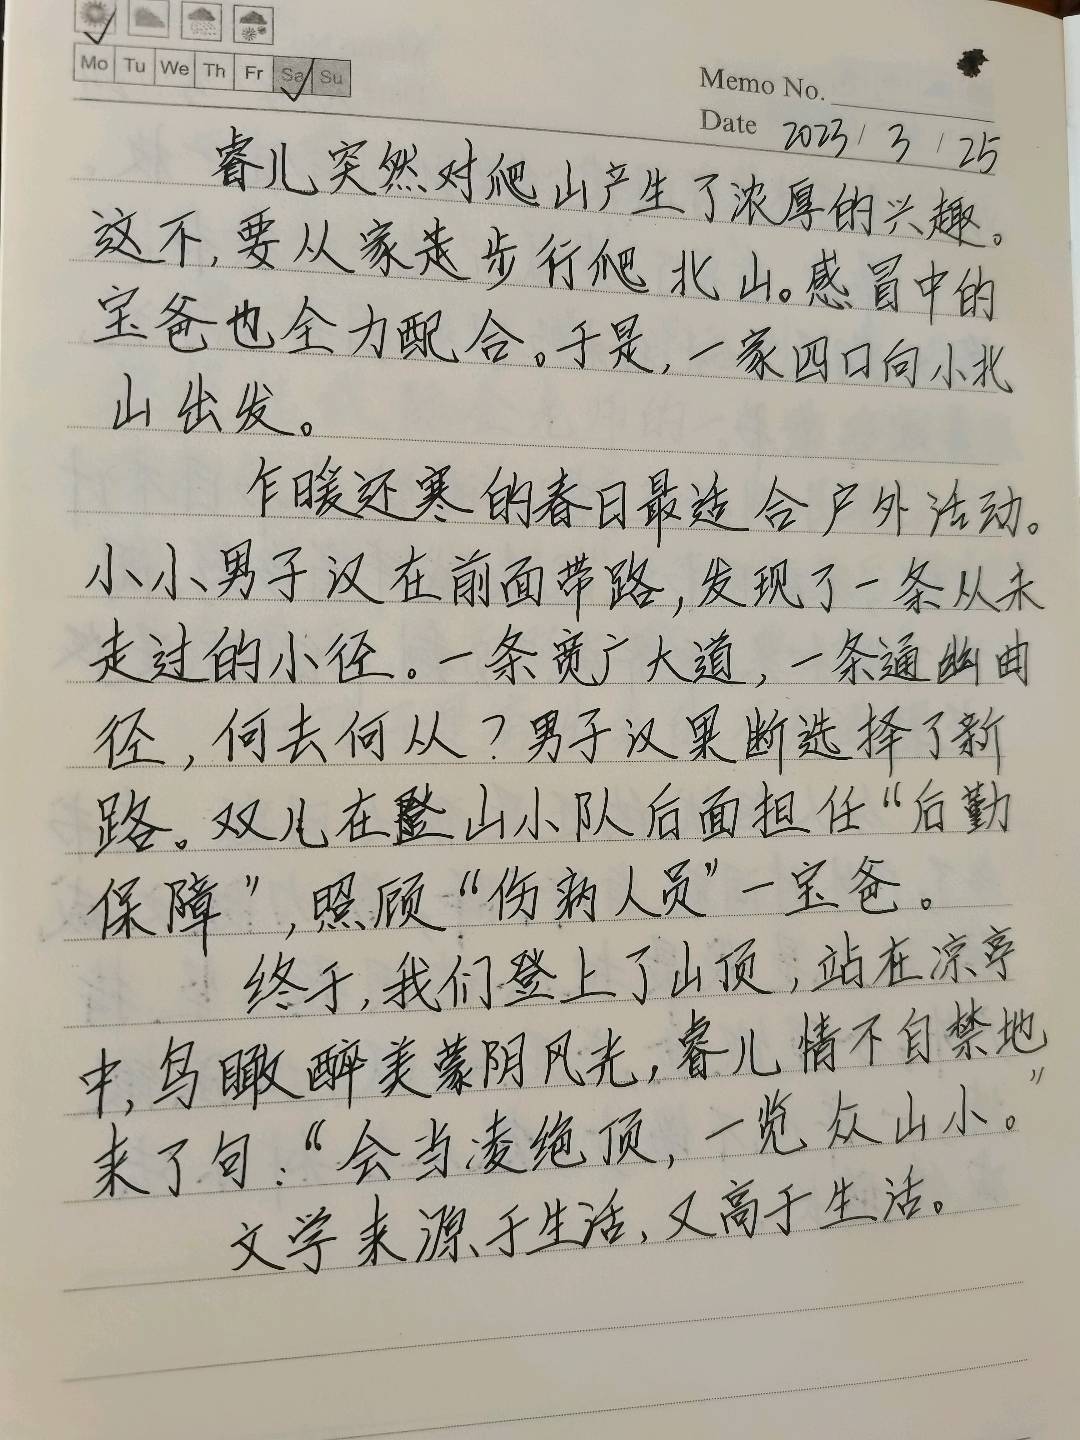 Mo Tu We Th Fr Sa Su
Memo No.
Date 2023/3/25
睿儿突然对爬山产生了浓厚的兴趣。
这不,要从家走步行爬北山。感冒中的
宝爸也全力配合。于是,一家四口向小北
山出发。
乍暖还寒的春日最适合户外活动。
小小男子汉在前面带路,发现了一条从未
走过的小径。一条宽广大道,一条通幽曲
径,何去何从?男子汉果断选择了新
路。双儿在登山小队后面担任“后勤
保障”,照顾“伤病人员”一宝爸。
终于,我们登上了山顶,站在凉亭
中,鸟瞰醉美蒙阴风光,睿儿情不自禁地
来了句:“会当凌绝顶,一览众山小。”
文学来源于生活,又高于生活。